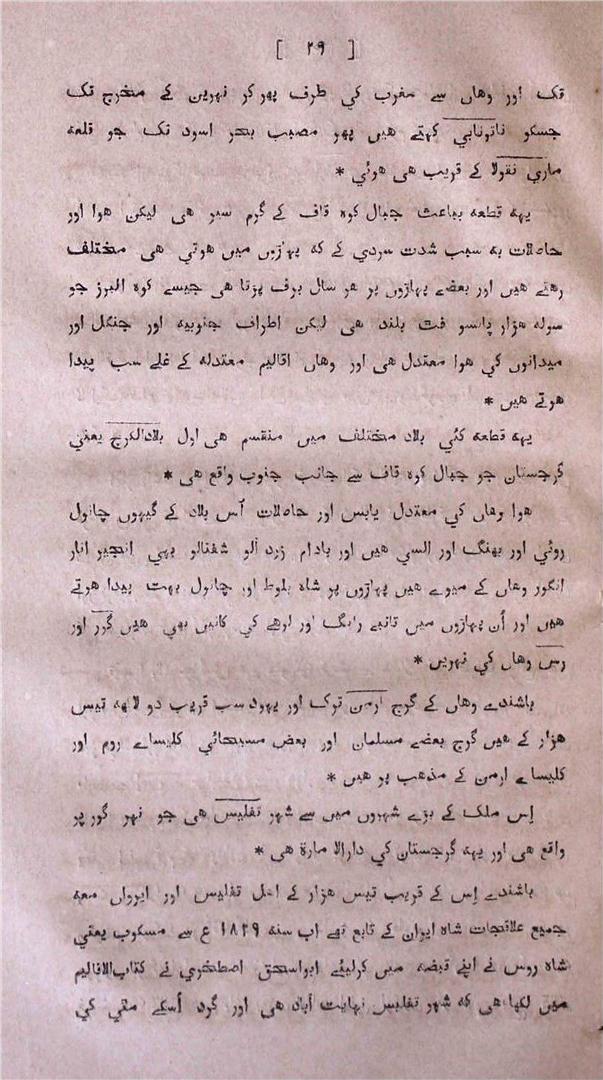 [ ۲۹ ]
تک اور وهاں سے مغرب کي طرف پهر کر نہرین کے مخرج تک
جسکو ناتونابي کہتے هیں پهر مصب بحر اسود تک جو قلعه
ماري نقولا کے قریب هی هوئي *
یہه قطعه بباعث جبال کوه قاف کے گرم سیر هی لیکن هوا اور
حاصلات به سبب شدت سردي کے که پہاڑوں میں هوتي هی مختلف
رهتے هیں اور بعضے پہاڑوں پر هر سال برف پڑتا هی جیسے کوه البرز جو
سوله هزار پانسو فت بلند هی لیکن اطراف جنوبیه اور جنگل اور
میدانوں کي هوا معتدل هی اور وهاں اقالیم معتدله کے غلے سب پیدا
هوتے هیں *
یہه قطعه کئي بلاد مختلف میں منقسم هی اول بلادالکرج یعني
گرجستان جو جبال کوه قاف سے جانب جنوب واقع هی *
هوا وهاں کي معتدل یابس اور حاصلات اُس بلاد کے گیہوں چانول
روئي اور بهنگ اور السي هیں اور بادام زرد آلو شفتالو بہي انجیر انار
انگور وهاں کے میوے هیں پہاڑوں پر شاه بلوط اور چانول بہت پیدا هوتے
هیں اور اُن پہاڑوں میں تانبے رانگ اور لوهے کي کانیں بهي هیں گرر اور
رس وهاں کي نہریں *
باشندے وهاں کے گرج ارمن ترک اور یہود سب قریب دو لاکهه تیس
هزار کے هیں گرج بعضے مسلمان اور بعض مسیحائي کلیساے روم اور
کلیساے ارمن کے مذهب پر هیں *
اِس ملک کے بڑے شہروں میں سے شہر تفلیس هی جو نہر گور پر
واقع هی اور یہه گرجستان کي دارالامارة هی *
باشندے اِس کے قریب تیس هزار کے اهل تفلیس اور ایرواں معه
جمیع علاقجات شاه ایران کے تابع تهے اب سنه ۱۸۲۹ ع سے مسکوب یعني
شاه روس نے اپنے قبضه میں کرلیئے ابواسحق اصطخري نے کتاب‌الاقالیم
میں لکها هی که شہر تفلیس نہایت آباد هی اور گرد اُسکے مٹي کي